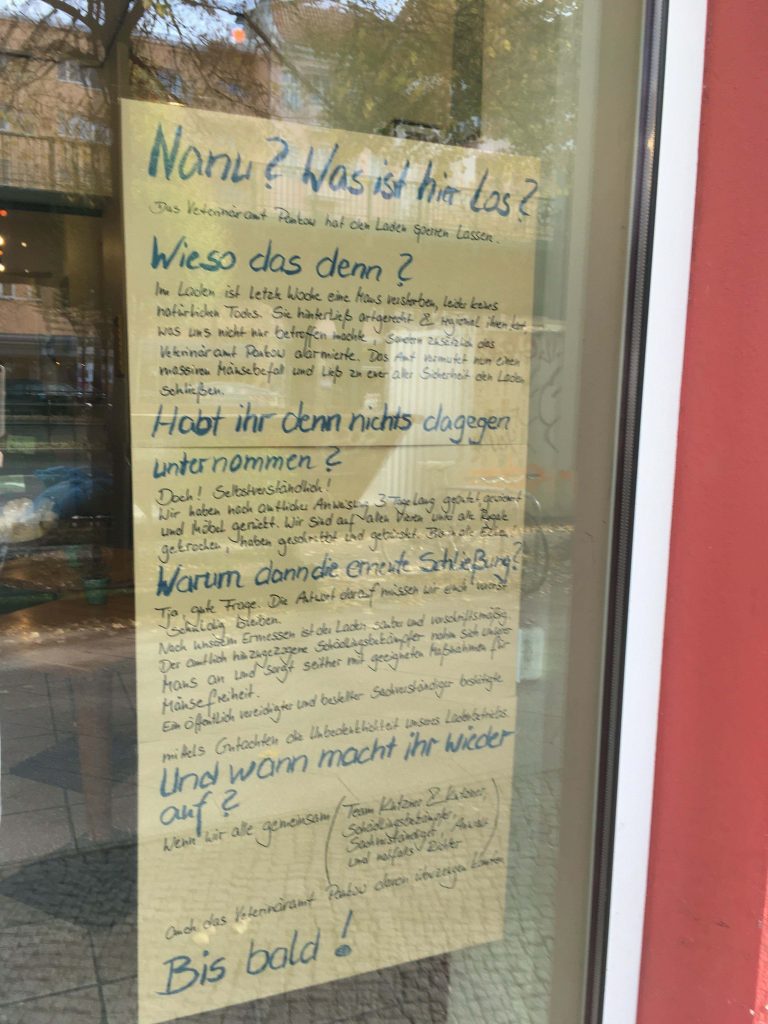 Nanu? Was ist hier los?
Das Veterinäramt Pankow hat den Laden sperren lassen.
Wieso das denn?
Im Laden ist letzte Woche eine Maus verstorben, leider keines
natürlichen Todes. Sie hinterließ artgerecht & regional ihren Kot
was uns nicht nur betroffen machte, sondern zusätzlich das
Veterinäramt Pankow alarmierte. Das Amt vermutet nun einen
massiven Mäusebefall und ließ zu euer aller Sicherheit den Laden
schließen.
Habt ihr denn nichts dagegen
unternommen?
Doch! Selbstverständlich!
Wir haben nach amtlicher Anweisung 3 Tage lang geputzt gewienert
und Möbel gerückt. Wir sind auf allen Vieren unter alle Regale
gekrochen, haben geschrubbt und gebürstet. Bis in alle Ecken.
Warum dann die erneute Schließung?
Tja, gute Frage. Die Antwort darauf müssen wir euch vorerst
schuldig bleiben.
Nach unserem Ermessen ist der Laden sauber und vorschriftsmäßig.
Der amtlich hinzugezogene Schädlingsbekämpfer nahm sich unserer
Maus an und sorgt seither mit geeigneten Maßnahmen für
Mäusefreiheit.
Ein öffentlich vereidigter und bestellter Sachverständiger bestätigte
mittels Gutachten die Unbedenklichkeit unseres Ladenbetriebs
Und wann macht ihr wieder
auf?
Wenn wir alle gemeinsam (Team Kutzner & Kutzner,
Schädlingsbekämpfer,
Sachverständiger, Anwalt
und notfalls Richter)
auch das Veterinäramt Pankow davon überzeugen konnten
Bis bald!